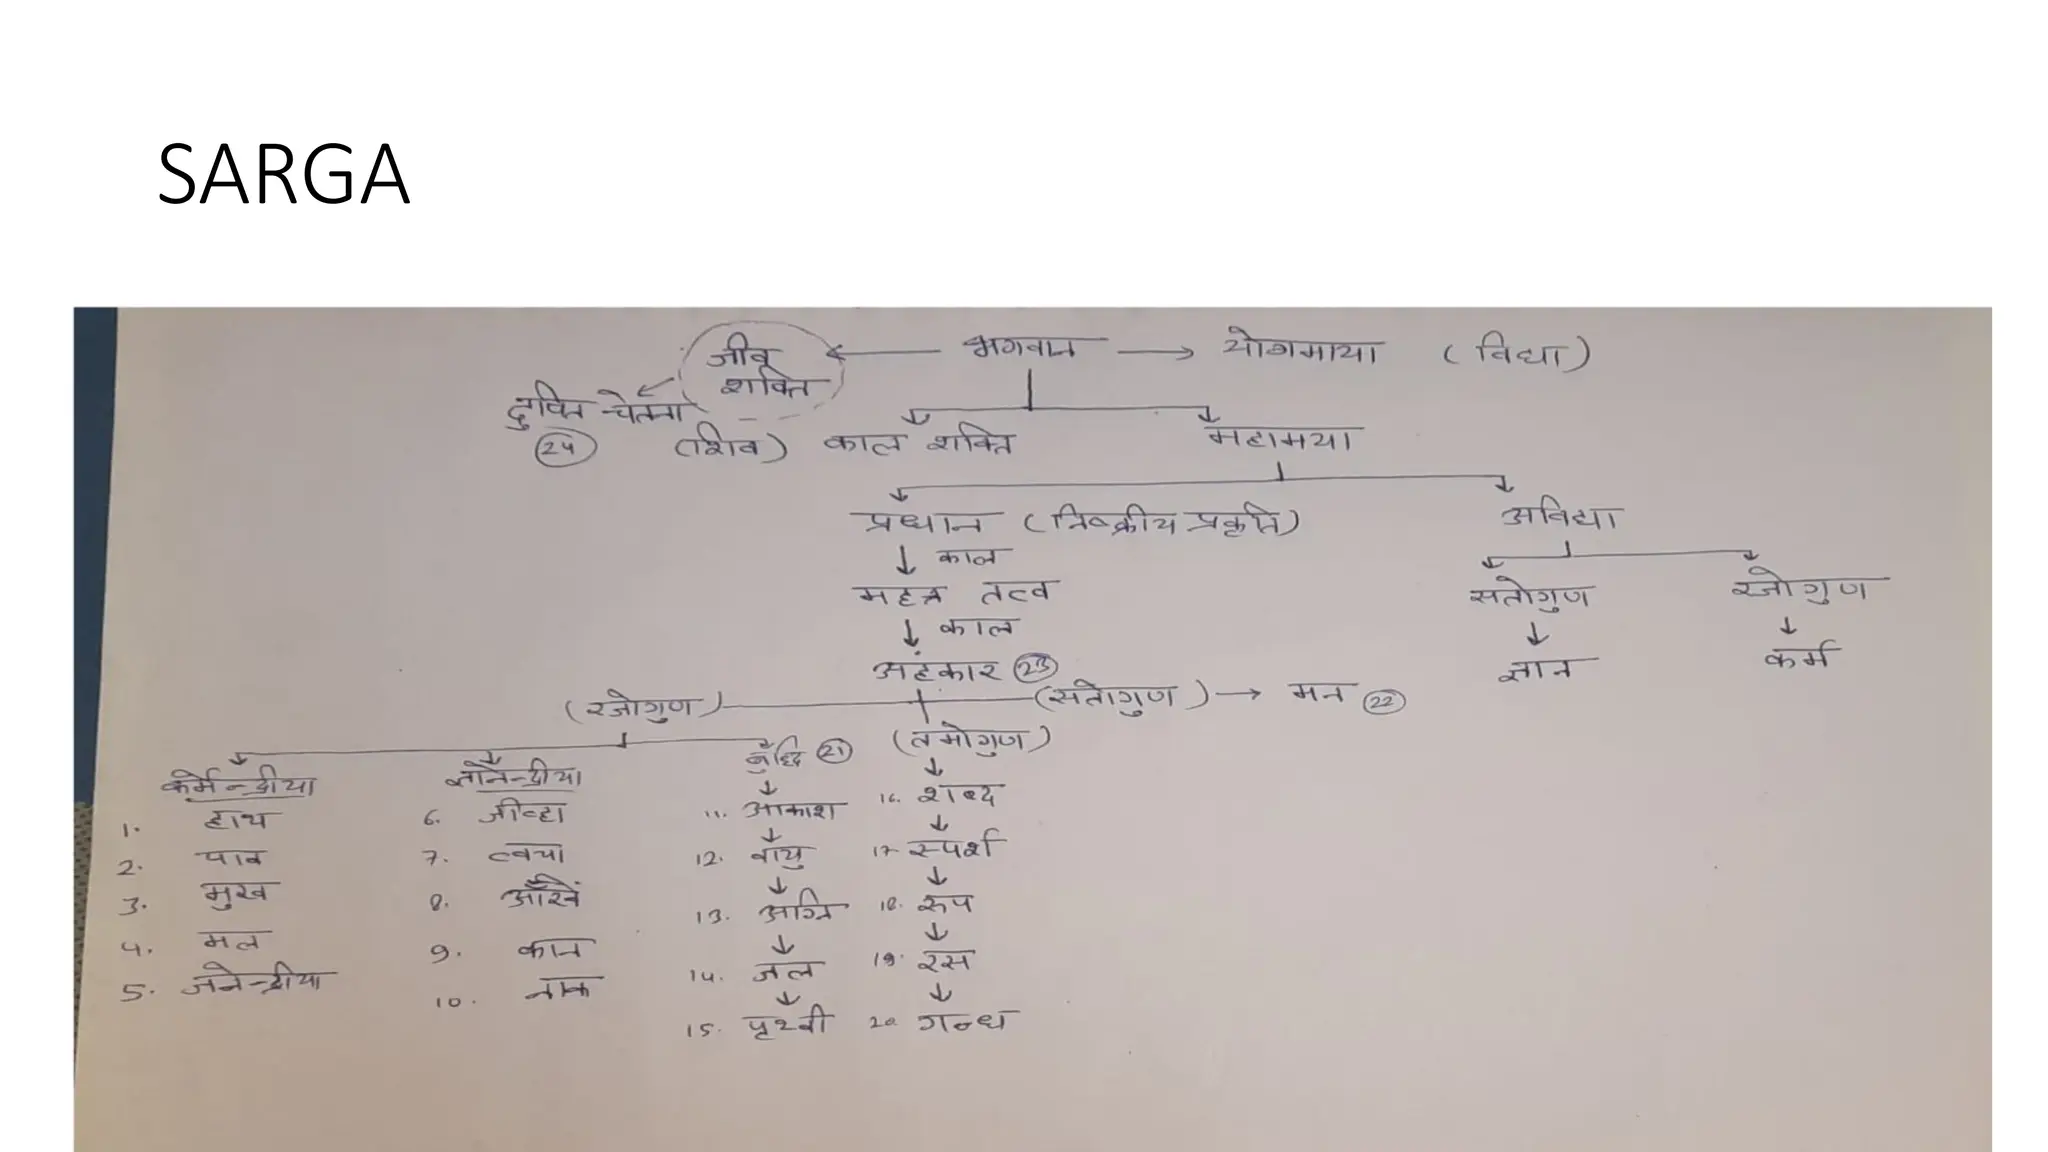 SARGA
जीव शक्ति ← भगवान → योगमाया ( विद्या )
दुक्ति चेतना (24) (शिव) काल शक्ति महामया
प्रधान ( निष्क्रीय प्रकृति ) अविद्या
↓ काल
महत्त तत्व सतोगुण रजोगुण
↓ काल
अहंकार (23) ज्ञान कर्म
( रजोगुण ) ( सतोगुण ) → मन (22)
बुध्दि (21) ( तमोगुण )
कर्मेन्द्रीया ज्ञानेन्द्रीया
1. हाथ 6. जीव्हा 11. आकाश 16. शब्द
2. पाव 7. त्वचा 12. वायु 17 स्पर्श
3. मुख 8. आँखें 13. अग्नि 18. रूप
4. मल 9. कान 14. जल 19. रस
5. जनेन्द्रीया 10. नाक 15. पृथ्वी 20 गन्ध